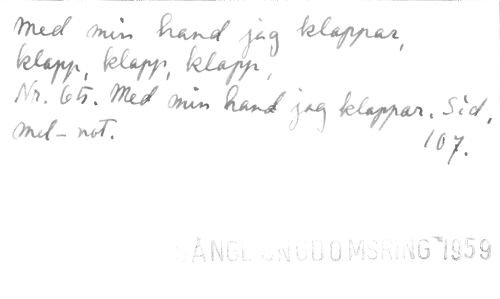 Med min hand jag klappar,
klapp, klapp, klapp,
Nr. 65. Med min hand jag klappar. Sid,
mel-not. 107.
UNGDOMSRING 1959